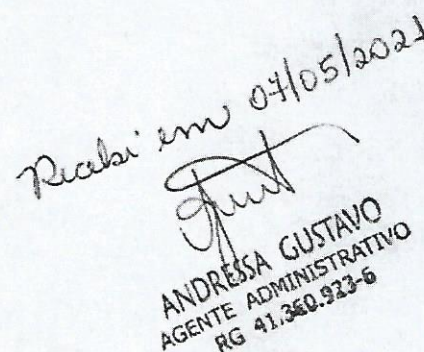 Recebi em 07/05/2021
ANDRESSA GUSTAVO
AGENTE ADMINISTRATIVO
RG 41.360.923-6